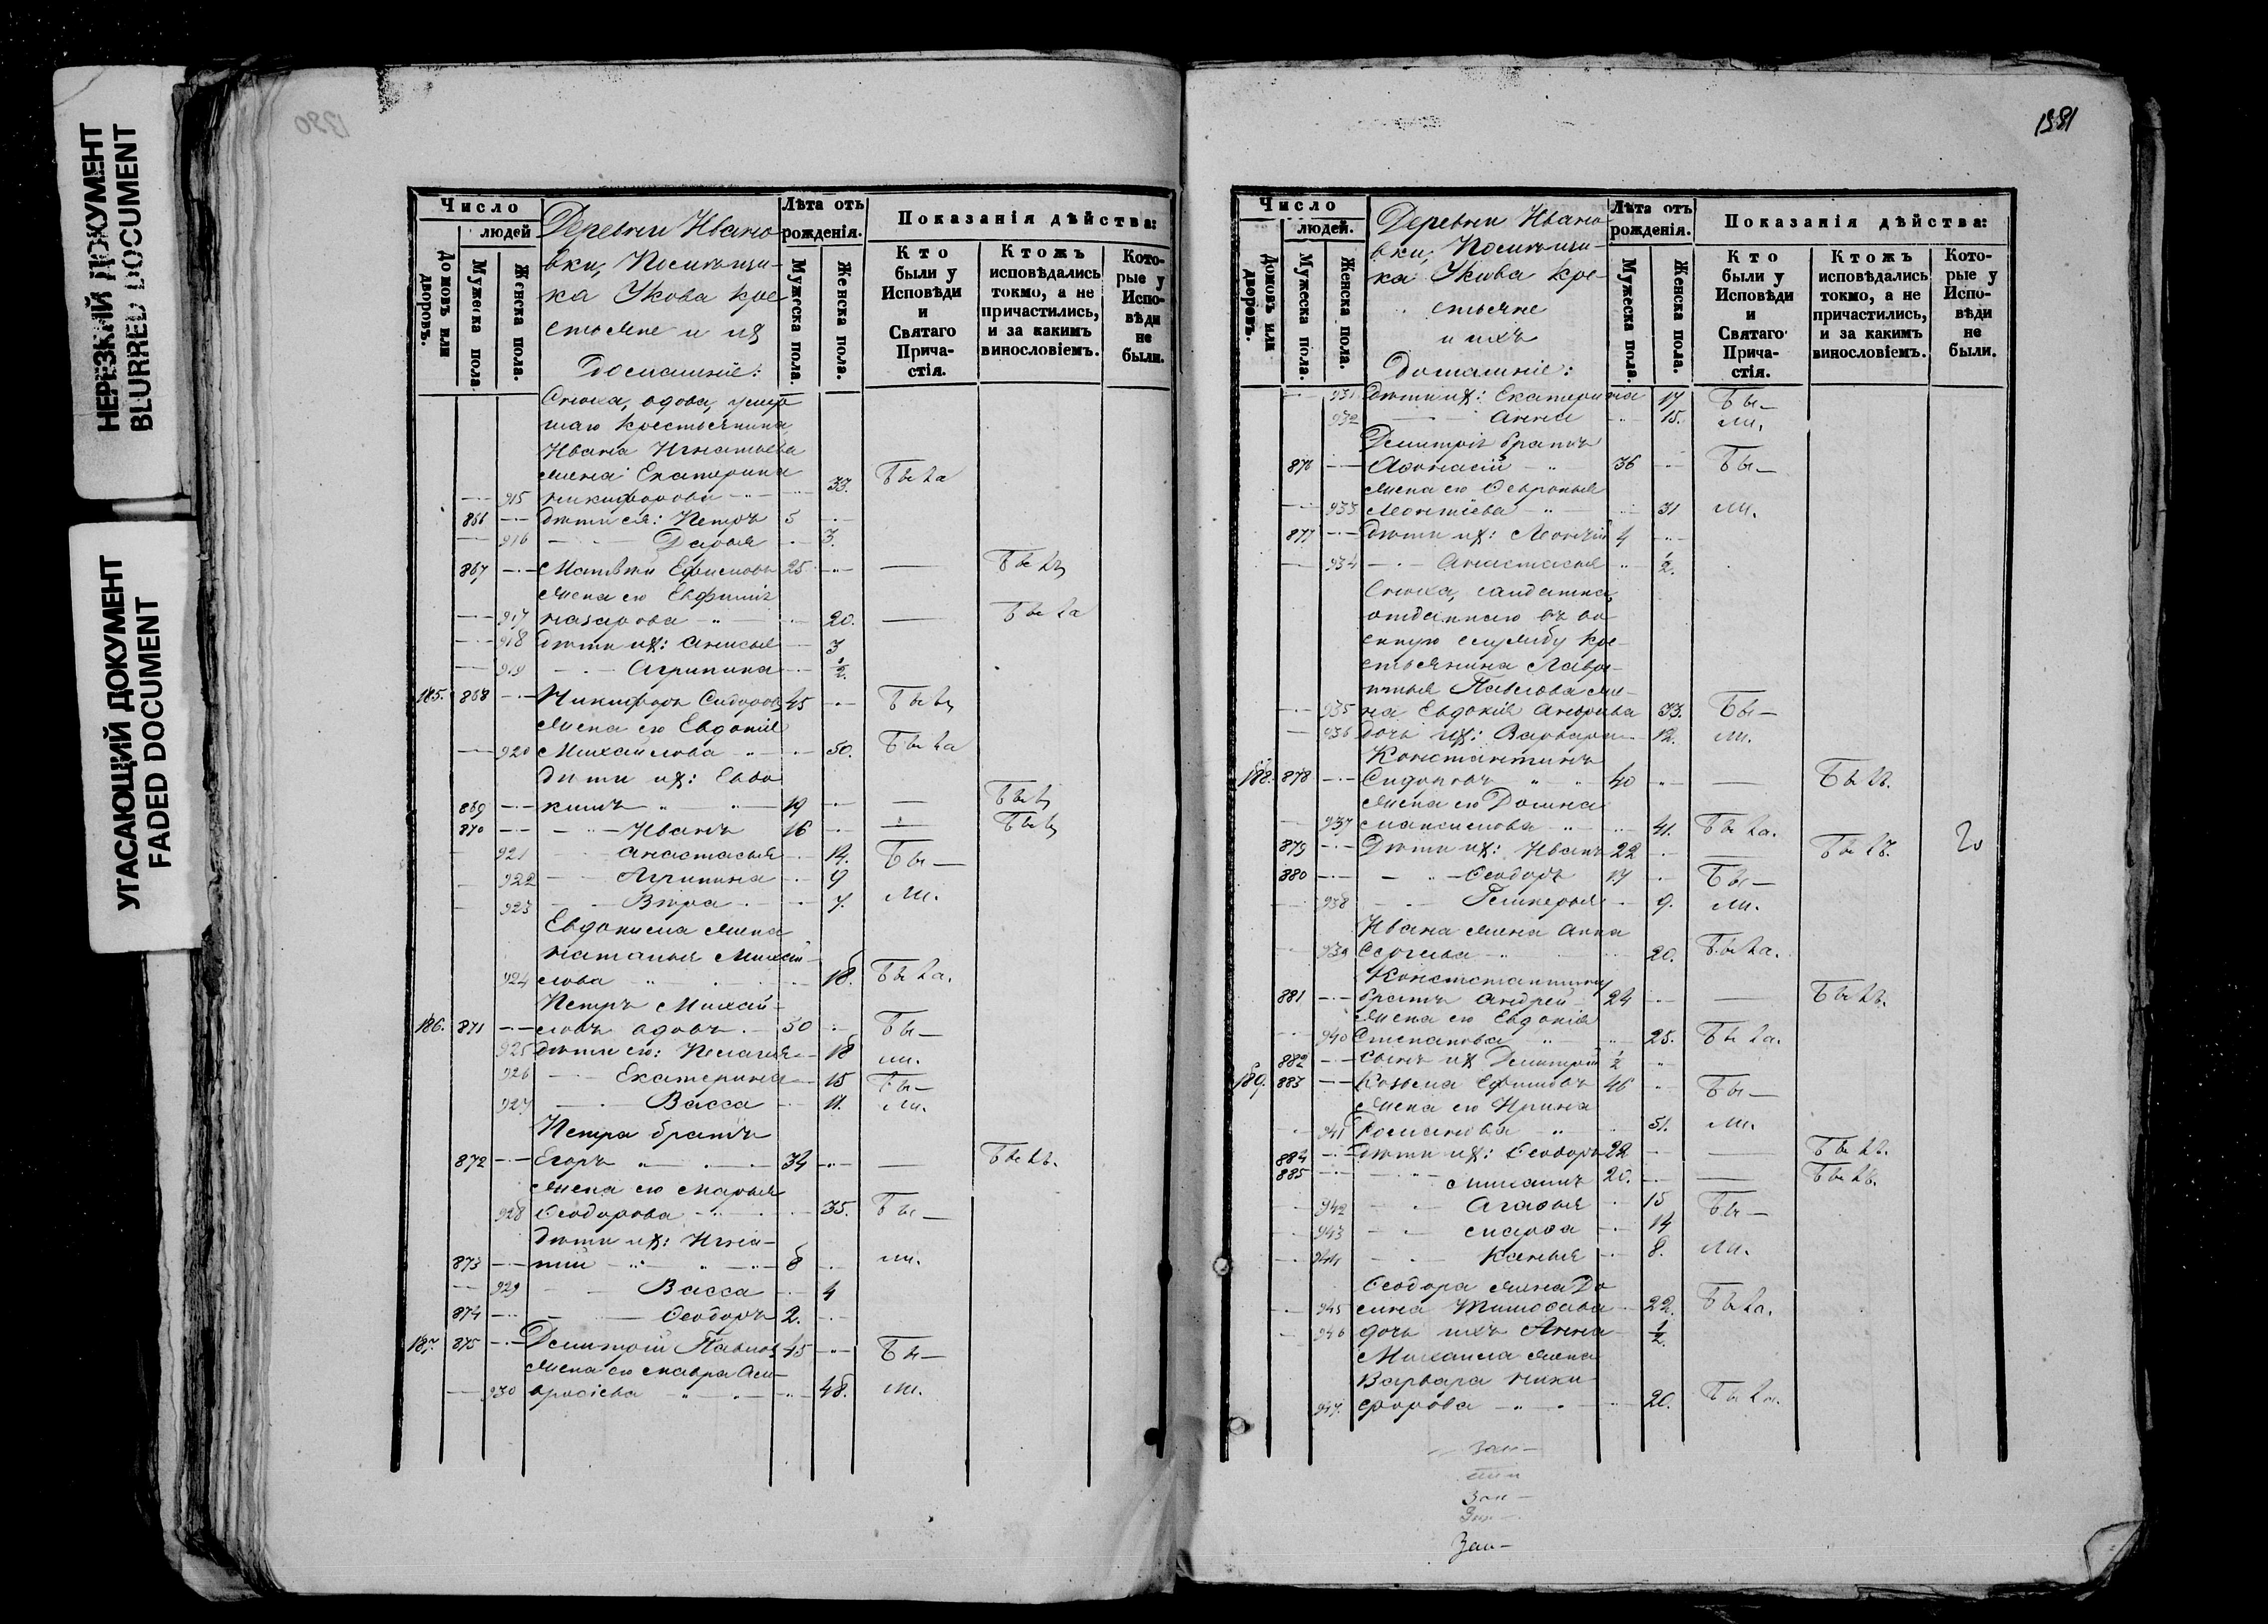 НЕРЕЗКИЙ ДОКУМЕНТ
BLURRED DOCUMENT
УГАСАЮЩИЙ ДОКУМЕНТ
FADED DOCUMENT
1380
Число
людей
Домовъ или дворовъ.
Мужеска пола.
Женска пола.
Деревни Ивано
вки, Помѣщи-
ка Укова кре
стьяне и их
домашніе:
Лѣта отъ рожденія.
Мужеска пола.
Женска пола.
Показанія дѣйства:
Кто были у Исповѣди и Святаго Прича-стія.
Ктожъ исповѣдались токмо, а не причастились, и за какимъ винословіемъ.
Кото-рые у Испо-вѣди не были.
Сноха, вдова, умер
шаго крестьянина
Ивана Игнатьева
жена Екатерина
915 никифорова 33. Была
866 дѣти ея: Петръ 5
916 Дарья 3.
867 Матвѣй Ефимовъ 25 Былъ
жена его Евфимія
917 назарова 20. Была
918 дѣти их: анисья 3
919 Агрипина 1/2.
185. 868 Никифоръ Сидоровъ 45 Былъ
жена его Евдокія
920 Михайлова 50. Была
дѣти их: Евдо
869 кимъ 19 Былъ
870 Иванъ 16 Былъ
921 анастасья 14. Бы—
922 Агрипина 9
923 Вѣра 7. ли.
Евдокима жена
наталья Михай-
924 лова 18. Была.
Петръ Михай-
186. 871 ловъ вдовъ 50 Бы—
925 дѣти его: Пелагія 18 ли.
926 Екатерина 15 Бы—
927 Васса 11. ли.
Петра братъ
872 Егоръ 34 Былъ.
жена его марья
928 Ѳеодорова 35. Бы—
дѣти их: Игна-
873 тій 8 ли.
929 Васса 4
874 Ѳеодоръ 2.
187. 875 Димитрій Павловъ 45 Бы—
жена его мавра Ам-
930 вросіева 48. ли.
1381
Число
людей.
Домовъ или дворовъ.
Мужеска пола.
Женска пола.
Деревни Ивано-
вки, Помѣщи-
ка Укова кре-
стьяне
и ихъ
домашніе:
Лѣта отъ рожденія.
Мужеска пола.
Женска пола.
Показанія дѣйства:
Кто были у Исповѣди и Святаго Прича-стія.
Ктожъ исповѣдались токмо, а не причастились, и за какимъ винословіемъ.
Кото-рые у Испо-вѣди не были.
931 дѣти их: Екатерина 17 Бы—
932 анна 15. ли.
Димитрія братъ
876 Аѳонасій 36 Бы—
жена его Ѳевронья
933 Леонтіева 31 ли.
877 дѣти их: Леонтій 4
934 Анастасья 1/2.
Сноха, салдатка,
отданнаго въ во
енную службу кре-
стьянина Лавре-
нтья Павлова же-
935 на Евдокія Андреева 33. Бы—
936 дочь их: Варвара 12. ли.
Константинъ
188. 878 Сидоровъ 40 Былъ.
жена его Домна
937 максимова 41. Была.
879 Дѣти их: Иванъ 22 Былъ.
880 Ѳеодоръ 17 Бы—
938 Гликерья 9. ли.
Ивана жена Анна
939 Сергеева 20. Была.
Константина
881 братъ Андрей 24 Былъ.
жена его Евдокія
940 Степанова 25. Была.
882 сынъ их Димитрій 1/2
189. 883 Козьма Ефимовъ 46 Бы—
жена его Ирина
941 Романова 51. ли.
884 дѣти их: Ѳеодоръ 22 Былъ.
885 михаилъ 20. Былъ.
942 Агаѳья 15 Бы—
943 марѳа 14
944 8. ли.
Ѳеодора жена До
945 мна Тимоѳеева 22. Была.
946 дочь ихъ Анна 1/2.
Михаила жена
Варвара ники-
947. форова 20. Была.